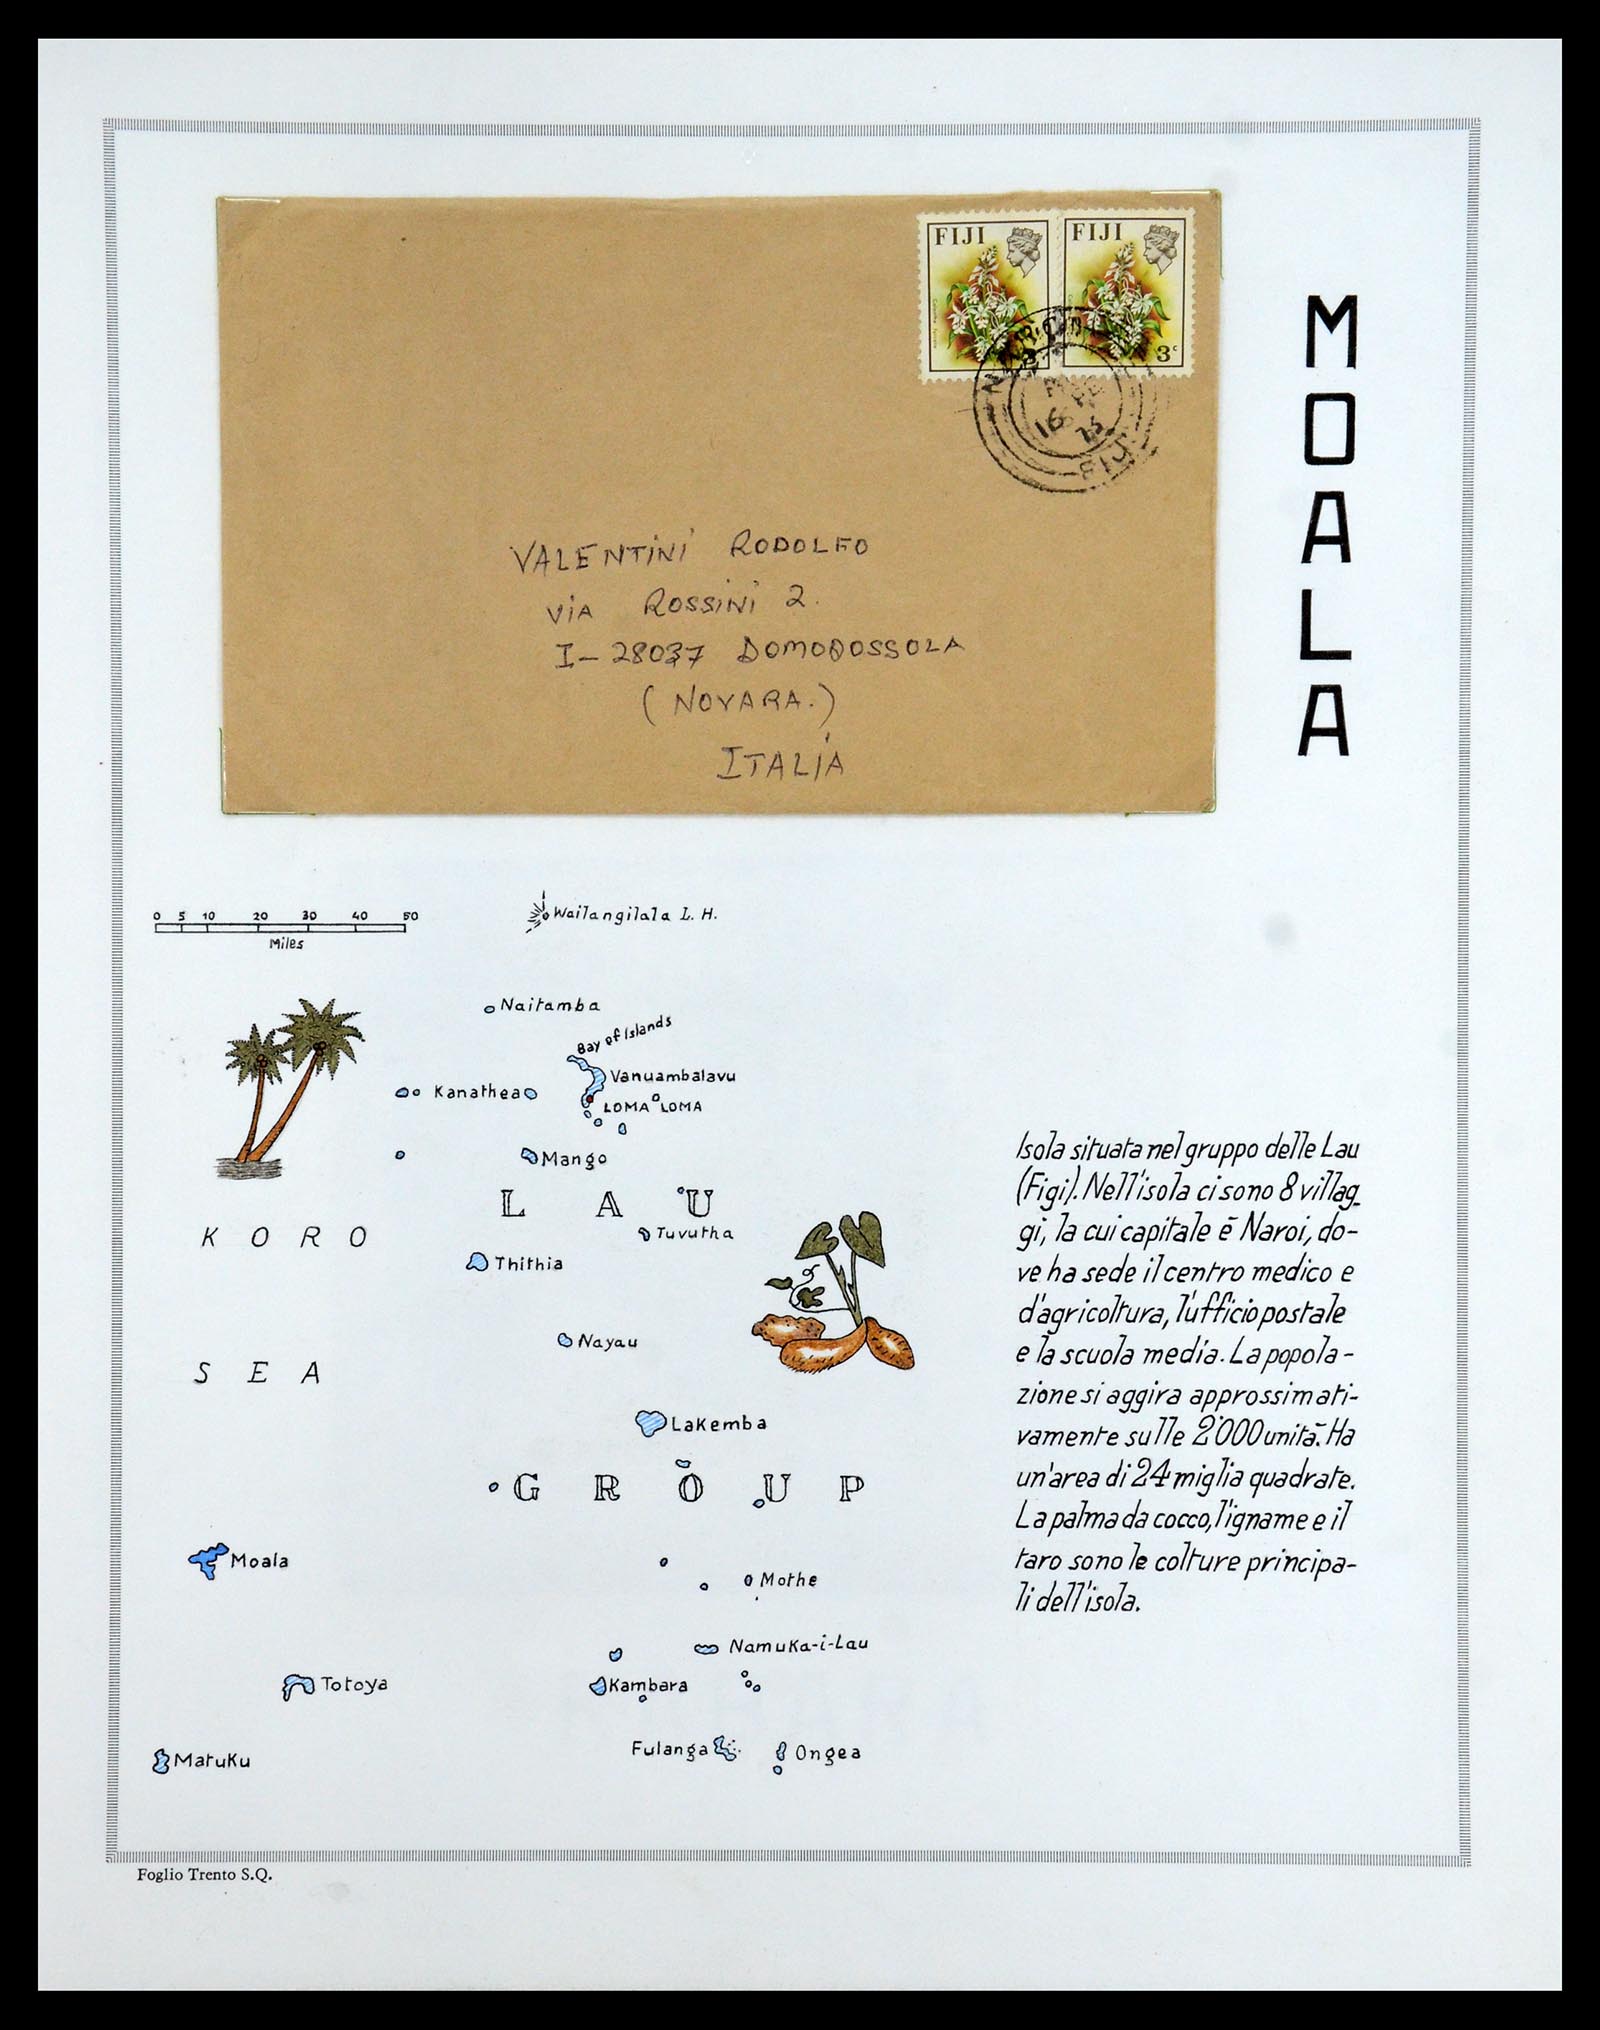 FIJI
FIJI
3c
16
75
FIJI
VALENTINI RODOLFO
VIA ROSSINI 2.
I-28037 DOMODOSSOLA
(NOVARA.)
ITALIA
MOALA
0 5 10 20 30 40 50
Miles
Wailangilala L. H.
Naitamba
Bay of Islands
Vanuambalavu
Kanathea
LOMA LOMA
Mango
LAU
Tuvutha
KORO
Thithia
Nayau
SEA
Lakemba
GROUP
Moala
Mothe
Namuka-i-Lau
Totoya
Kambara
Fulanga
Ongea
Matuku
Isola situata nel gruppo delle Lau
(Figi). Nell'isola ci sono 8 villag-
gi, la cui capitale è Naroi, do-
ve ha sede il centro medico e
d'agricoltura, l'ufficio postale
e la scuola media. La popola-
zione si aggira approssimati-
vamente sulle 2'000 unità. Ha
un'area di 24 miglia quadrate.
La palma da cocco, l'igname e il
taro sono le colture principa-
li dell'isola.
Foglio Trento S.Q.